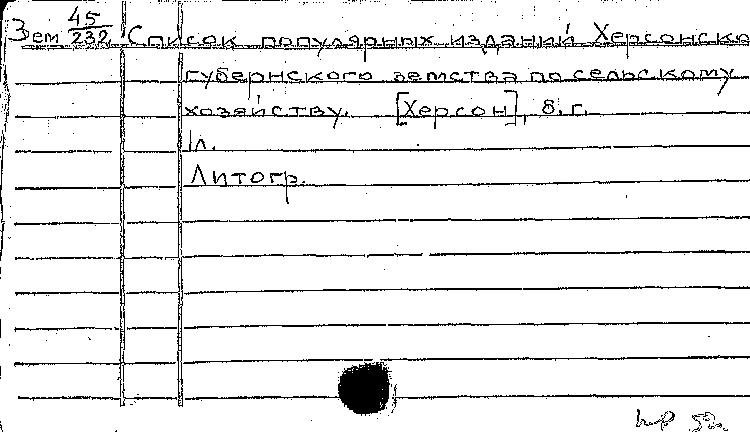 Зем 45/232 Список популярных изданий Херсонско
губернского земства по сельскому
хозяйству. [Херсон], б. г.
1л.
Литогр.